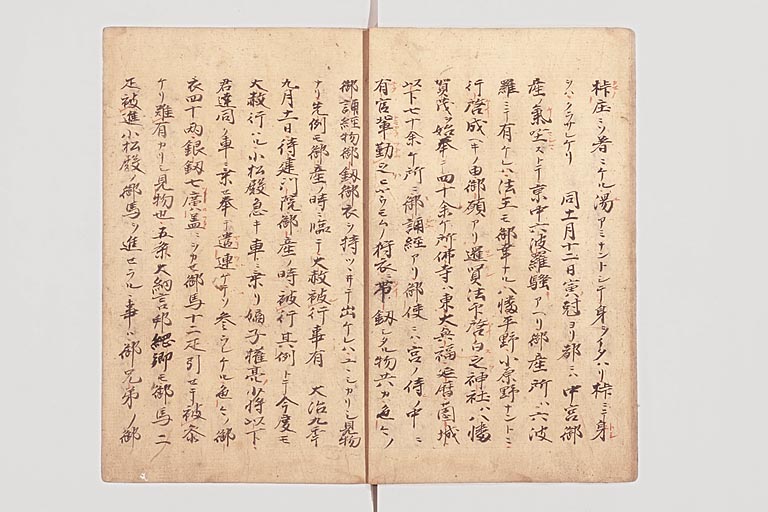 庄ニソ着ニケル湯アミナントシテ身ヲイタハリ桛ニテ身
クラサレケリ 同十一月十二日寅剋ヨリ都ニハ中宮御
産ノ気坐ストテ京中六波羅騒アヘリ御産所ハ六波
羅ニテ有ケレハ法王モ御幸ナル八幡平野小原野ナントニ
行啓成ヘキノ由御願アリ法下啓白之神社ハ八幡
賀茂ヲ始奉シ四十余ケ所佛寺ハ東大興福延暦園城
以下七十余ケ所ニ御誦経アリ御使ニハ宮ノ侍ノ中ニ
有官輩勤之ヒヤウモクノ狩衣ニ帯釼シタル物共カ色々ノ
御誦経物御釼御衣ヲ持ツヽキテ出ケレハユヽシカリシ見物
ナリ先例モ御産ノ時ニ臨テ大赦被行事有 大治九年
九月十一日待建門院御産ノ時被行其例トテ今度モ
大赦行ハル小松殿急キ車ニ乗リ嫡子権亮少将以下ニ
君達同ノ車ニ乗セ奉テ遣連ケテソ参ラレケル色々ノ御
衣四十両銀釼七広蓋ニシカセ御馬十二疋引セテ被参
ケリ難有カリシ見物也五条大納言邦綱卿モ御馬二
疋被進小松殿ノ御馬ヲ進セラルヽ事ハ御兄弟ノ御